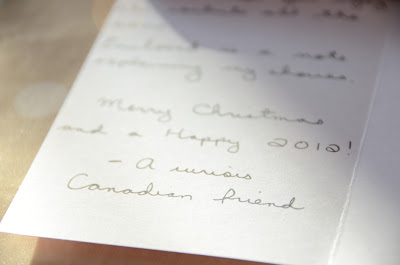 the
Enclosed is a note
explaining my choices.
Merry Christmas
and a Happy 2012!
- A curious
Canadian friend